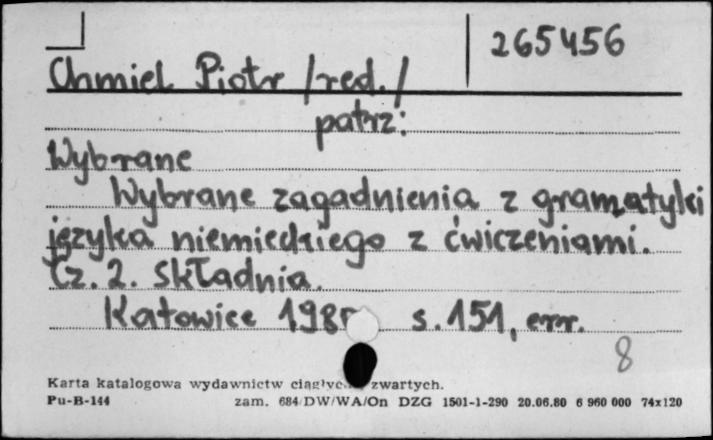 265456
Chmiel Piotr /red./
patrz:
Wybrane
Wybrane zagadnienia z gramatyki
języka niemieckiego z ćwiczeniami.
Cz. 2. Składnia.
Katowice s. 151, err.
8
Karta katalogowa wydawnictw zwartych.
Pu-B-144 zam. 684/DW/WA/On DZG 1501-1-290 20.06.80 6 960 000 74x120